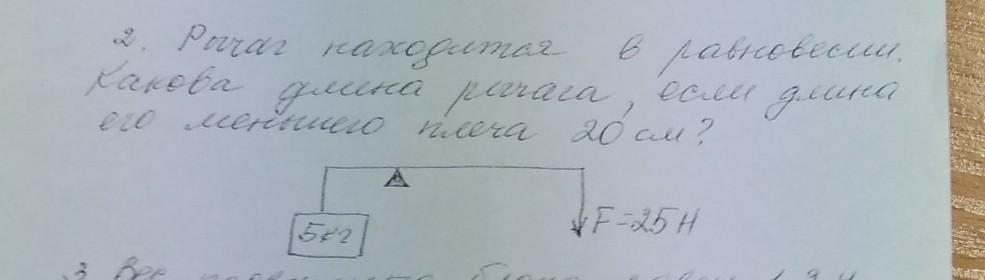 2. Рычаг находится в равновесии.
Какова длина рычага, если длина
его меньшего плеча 20 см?
5кг
F=25Н
3 Вес